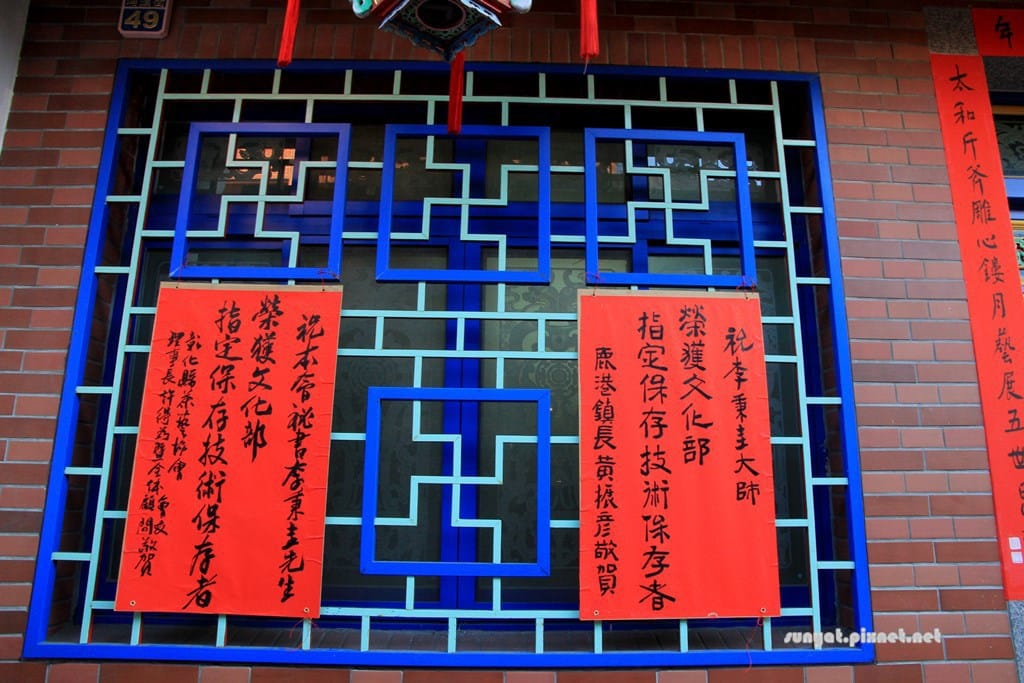 49
年
太和斤斧雕心鏤月藝展五世
祝李秉圭大師
榮獲文化部
指定保存技術保存者
鹿港鎮長黃振彥敬賀
祝本會秘書李秉圭先生
榮獲文化部
指定保存技術保存者
彰化縣茶藝協會
理事長許
暨全體顧問敬賀
會友
sunyat.pixnet.net